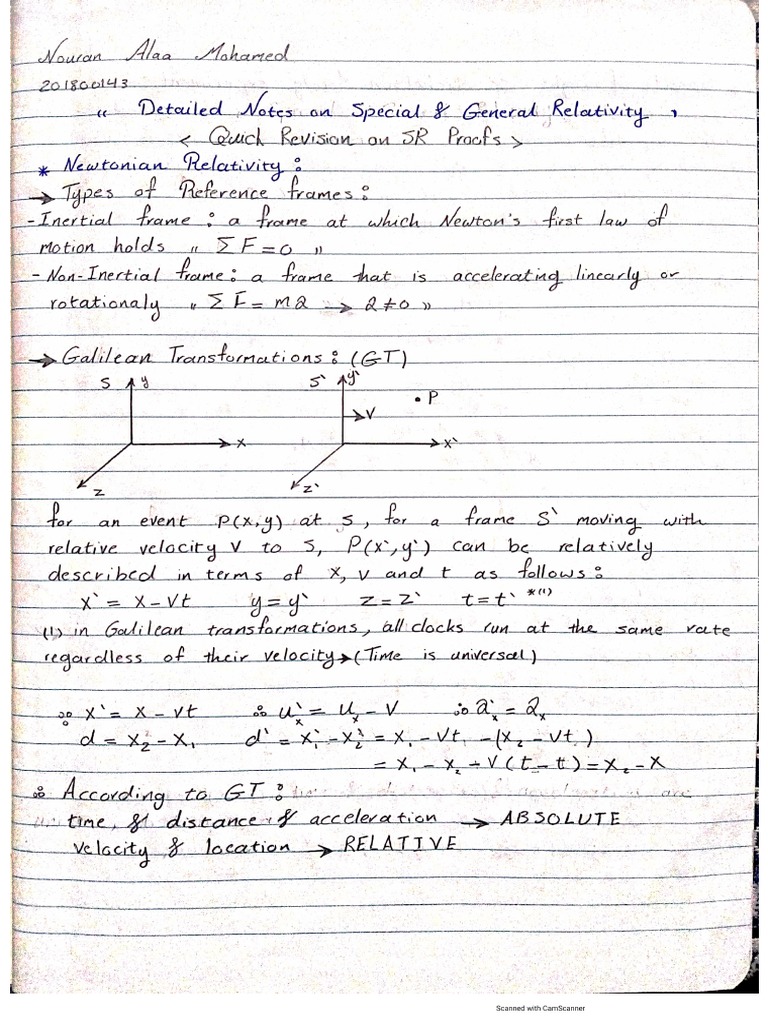 Nouran Alaa Mohamed
201800143
“ Detailed Notes on Special & General Relativity „
< Quick Revision on SR Proofs >
* Newtonian Relativity :
→ Types of Reference frames :
- Inertial frame : a frame at which Newton's first law of
motion holds “ ΣF = 0 „
- Non-Inertial frame : a frame that is accelerating linearly or
rotationaly “ ΣF = ma → a ≠ 0 „
→ Galilean Transformations : (GT)
S y S` y`
• P
V
x x`
z z`
for an event P(x,y) at S, for a frame S` moving with
relative velocity V to S, P(x`,y`) can be relatively
described in terms of x, v and t as follows :
x` = x - vt y = y` z = z` t = t` *(1)
(1) in Galilean transformations, all clocks run at the same rate
regardless of their velocity → (Time is universal)
∴ x` = x - vt ∴ u`x = ux - v ∴ a`x = ax
d = x2 - x1 d` = x`1 - x`2 = x1 - vt1 - (x2 - vt1)
= x1 - x2 - v(t - t) = x2 - x
∴ According to GT :
time, & distance & acceleration → ABSOLUTE
velocity & location → RELATIVE
Scanned with CamScanner